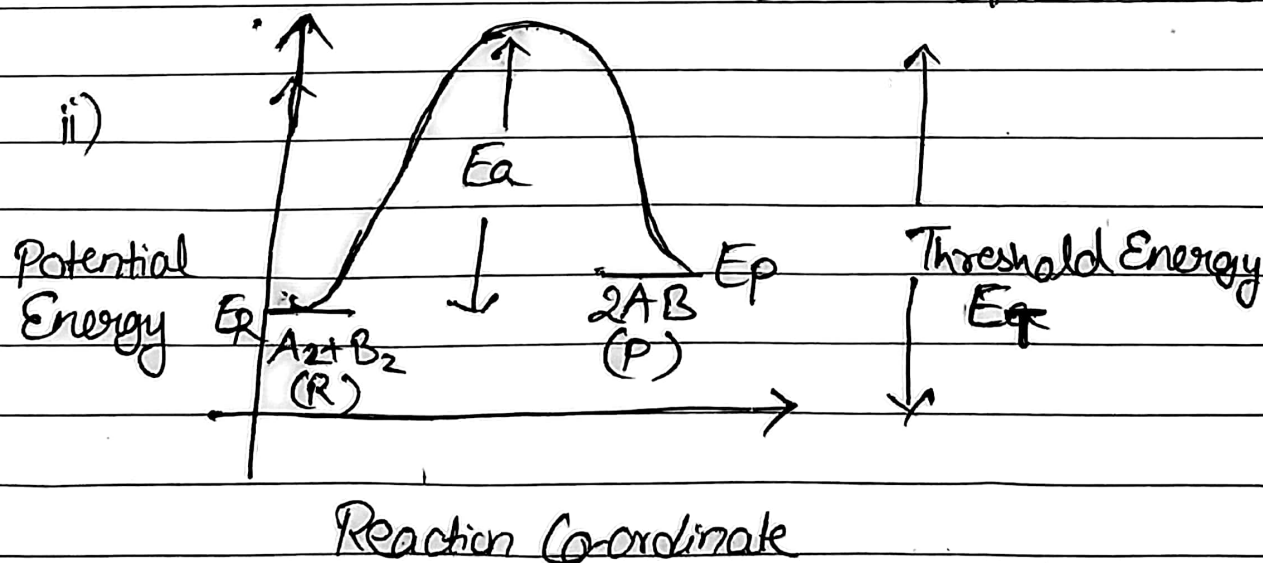 ii)
Ea
Potential
Energy
ER
A2 + B2
(R)
Ep
2AB
(P)
Threshold Energy
ET
Reaction Co-ordinate